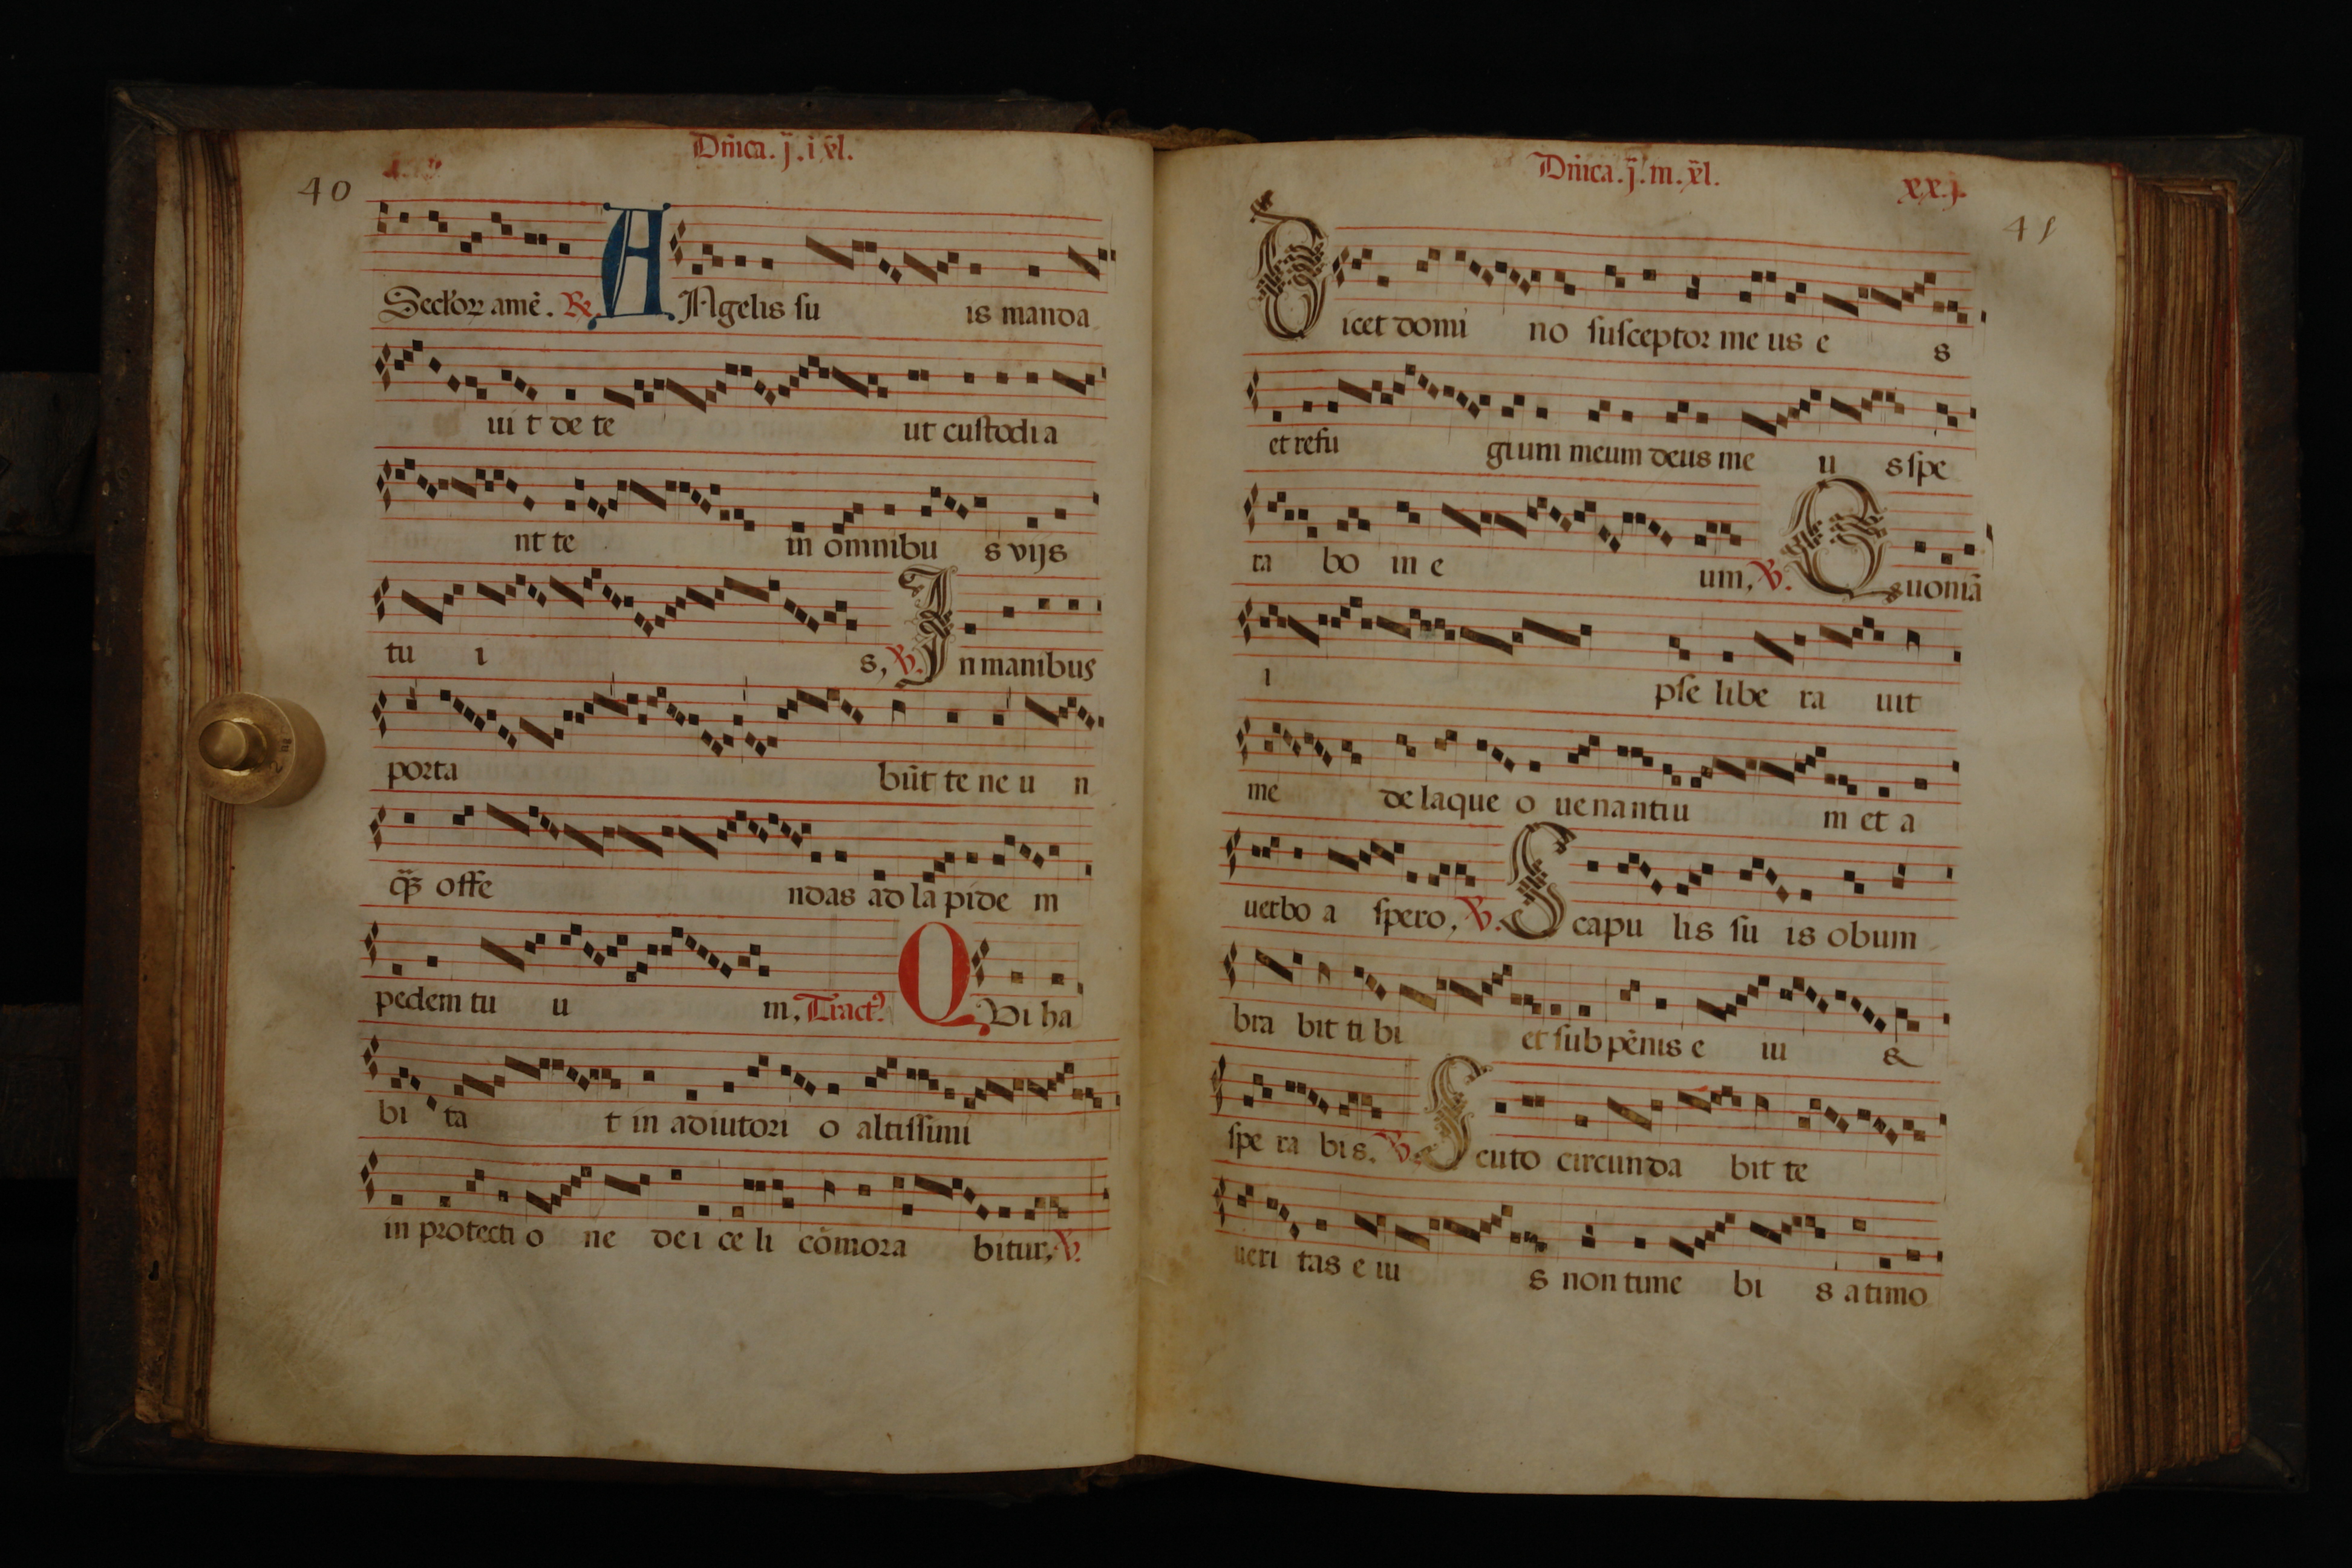 Dñica. j. i xl.
40
Seclorꝝ amē. ℟. ANgelis su is manda
ui t de te ut custodi a
nt te in omnibu s vijs
tu i s, ℣. In manibus
porta būt te ne u n
offe ndas ad la pide m
pedem tu u m, Tractꝰ QVi ha
bi ta t in adiutori o altissimi
in protecti o ne de i ce li cōmora bitur, ℣.
Dñica. j. m. xl. xx.j.
41
Dicet domi no susceptor me us e s
et refu gium meum deus me u s spe
ra bo in e um, ℣. Quoniā
i pse libe ra uit
me de laque o uenantiu m et a
uerbo a spero, ℣. Scapu lis su is obum
bra bit ti bi et sub pēnis e iu s
spe ra bis. ℣. Scuto circunda bit te
ueri tas e iu s non time bi s a timo